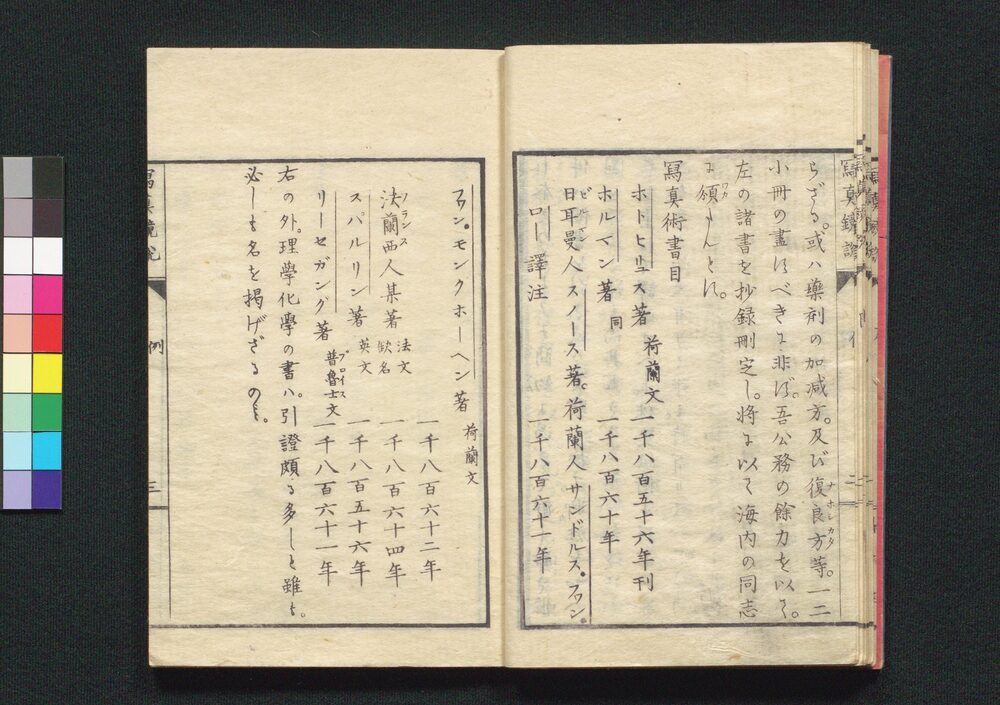 らざる。或ハ藥劑の加减方。及び復良方等。一二
ナホシカタ
小冊の盡すべきに非ず。吾公務の餘力を以て。
左の諸書を抄録刪定し。將に以て海内の同志
に頒たんとす。
ワカ
寫真術書目
ホトヒユス著 荷蘭文 一千八百五十六年刊
ホルマン著 同 一千八百六十年
日耳曼人スノース著。荷蘭人サンドルス。フワン。
ロー譯注 一千八百六十一年
フワン。モンクホーヘン著 荷蘭文 一千八百六十二年
法蘭西人某著 法文 欽名 一千八百六十四年
フランス
スパルリン著 英文 一千八百五十六年
リーセガング著 普魯士文 一千八百六十一年
プロイス
右の外。理學化學の書ハ。引證頗る多しと雖も。
必しも名を掲げざるのミ。
寫真鏡
例
三